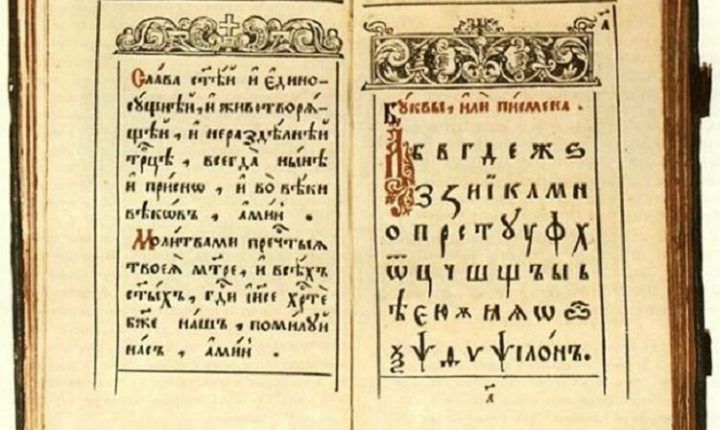 Слава ст҃ѣй и єдино-
сущнѣй, и животворѧ-
щѣй, и нераздѣлнѣй
трⷪ҇цѣ, всегда нынѣ
и приснѡ, и во вѣки
вѣкѡвъ, аминь.
Молитвами преч҇тыѧ
твоеѧ мт҃ре, и всѣхъ
ст҃ыхъ, гд҇и іи҃се хрт҇е
бж҃е нашъ, помилуй
насъ, аминь.
а҃
Буквы, или писмена.
А Б В Г Д Е Ж Ѕ
З Ꙁ И Ї К Л М Н
О П Р С Т Ꙋ У Ф Х
Ѿ Ц Ч Ш Щ Ъ Ы Ь
Ѣ Є Ю Ж Ꙗ Ѧ Ѡ Ѽ
Ѯ Ѱ Ѳ Ѵ ѱілонъ.
а҃